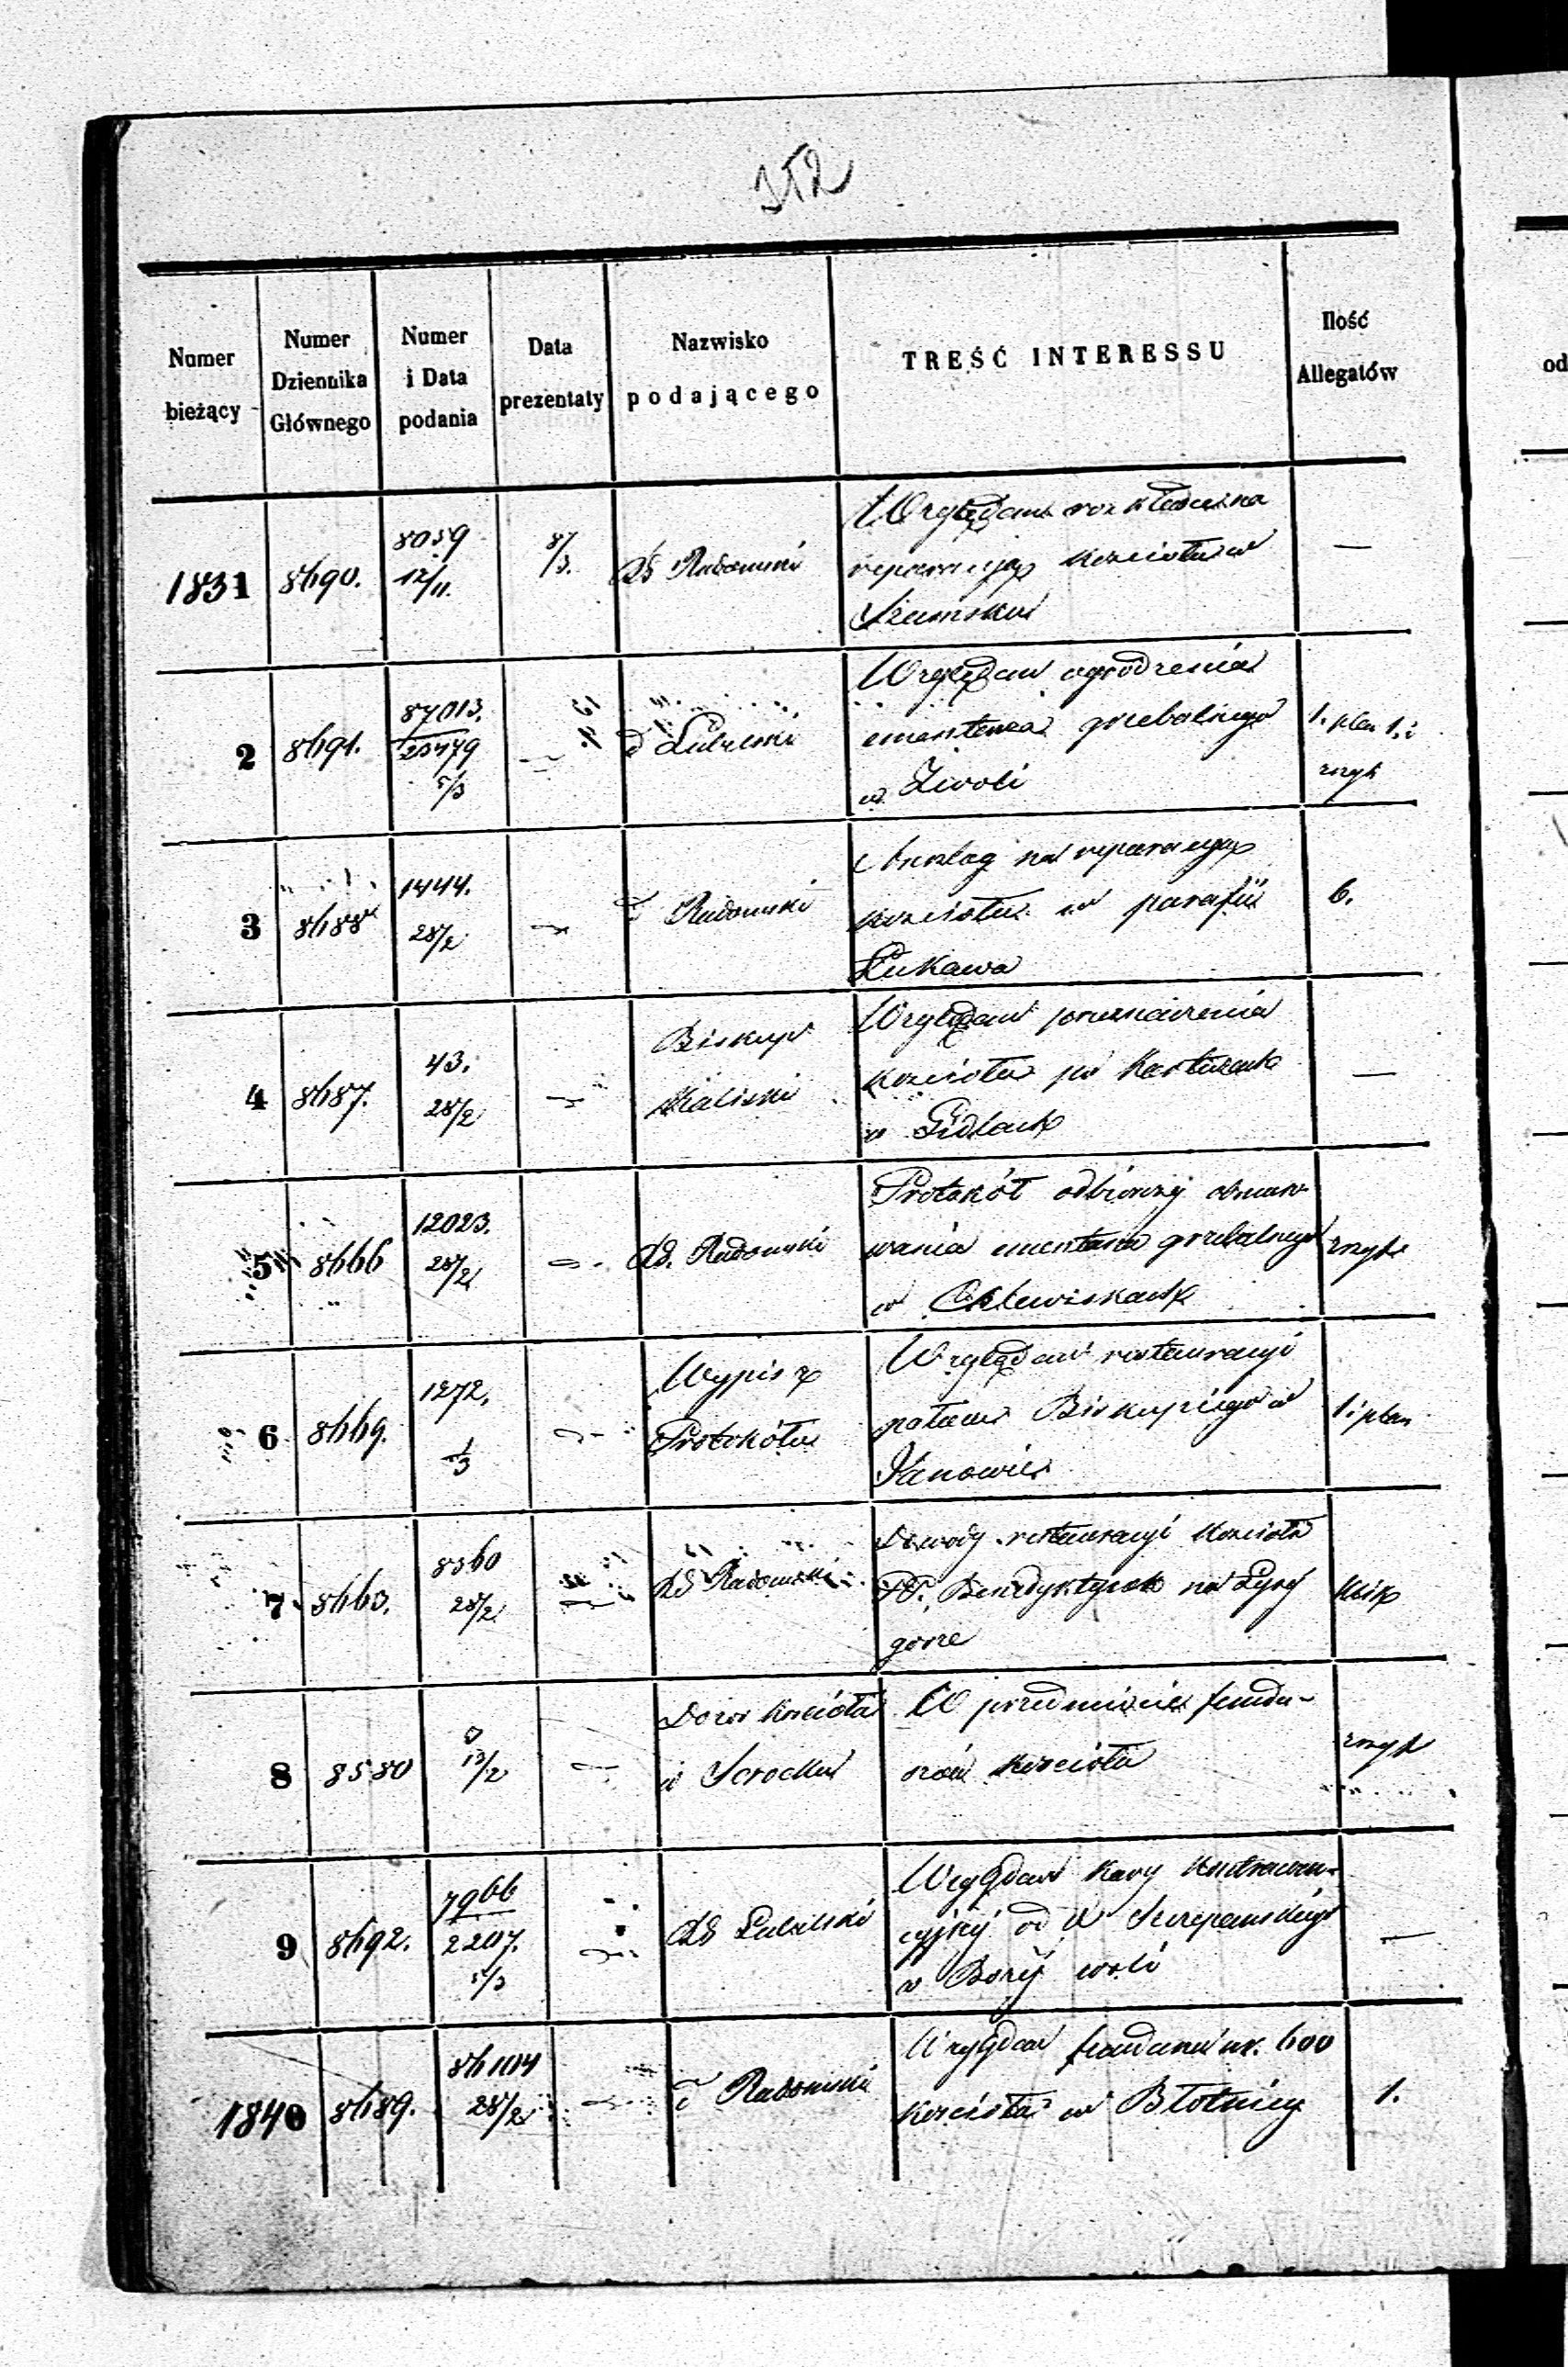 Numer bieżący
Numer Dziennika Głównego
Numer i Data podania
Data prezentaty
Nazwisko podającego
TREŚĆ INTERESSU
Ilość Allegatów
1831
8690.
8059
12/11.
8/3.
Rd Radomski
Względem rozkładu na
reparacyą kościoła w
—
2
8691.
87013.
23479
5/3
d° Lubelski
Względem ogrodzenia
cmentarza grzebalnego
w
1. plan 1. i
3
8688
1444.
28/2
d° Radomski
Anszlag na reparacyą
kościoła w parafii
Łukawa
6.
4
8687.
43.
28/2
Biskup
Kaliski
Względem przeznaczenia
kościoła po Kartuzach
w Gidlach
—
5
8666
12023.
28/2
Rd. Radomski
Protokół odbiorczy obmuro
wania cmentarza grzebalnego
w Chlewiskach
6
8669.
1272.
1/3
Wypis z
Protokółu
Względem restauracyi
pałacu Biskupiego w
Janowie
1 i plan
7
8663.
8360
28/2
Rd Radomski
Dowody restauracyi kościoła
PP. Benedyktynek na Łysej
gorze
8
8580
0
13/2
Dozor kościoła
w Serocku
W przedmiocie fundu-
szów kościoła
9
8692.
7966
2207.
5/3
Rd Lubelski
Względem kary kontrawen-
cyjnej od W Szczepanskiego
w Bożej woli
—
1840
8689.
28/2
d° Radomski
Względem funduszu 600
kościoła w Błotnicy
1.